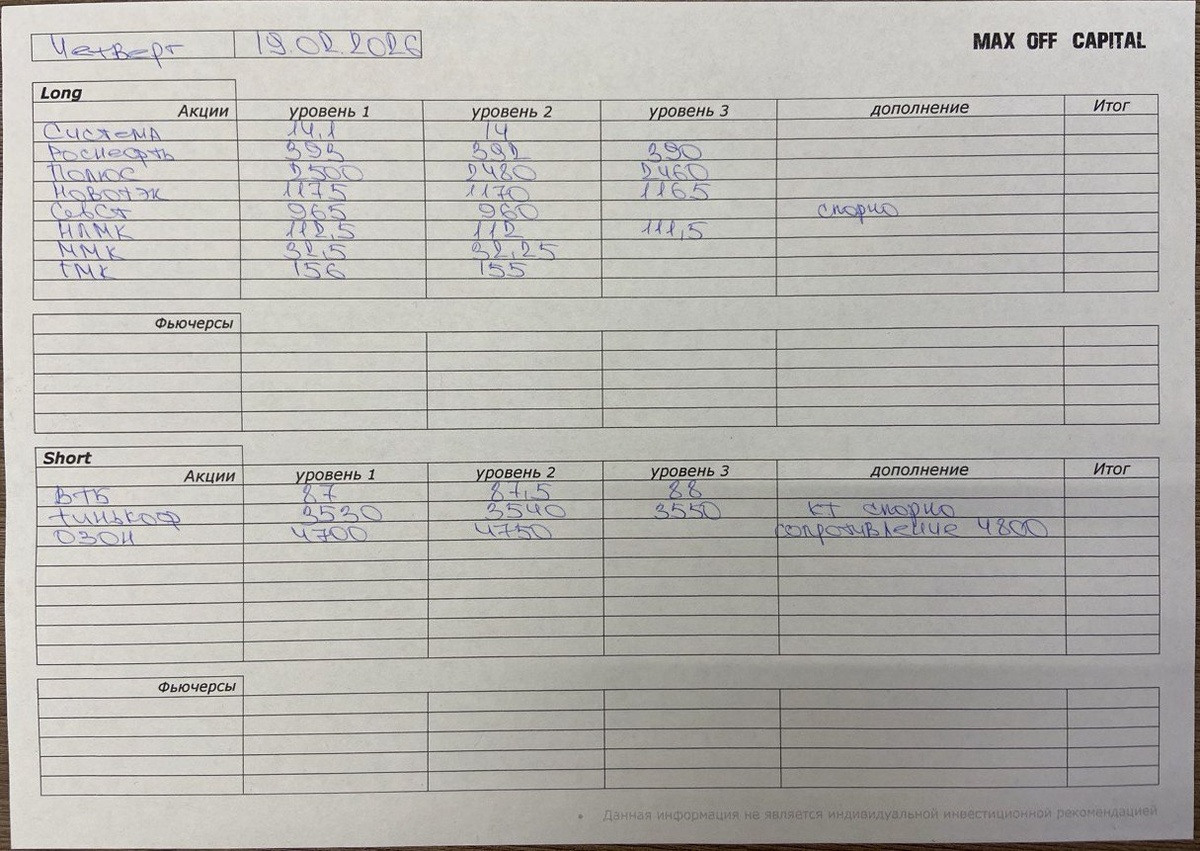 Четверг 19.02.2026 MAX OFF CAPITAL
Long
Акции уровень 1 уровень 2 уровень 3 дополнение Итог
Система 14,1 14
Роснефть 393 392 390
Полюс 2500 2480 2460
Новотэк 1175 1170 1165
СевСт 965 960 спорно
НЛМК 112,5 112 111,5
ММК 32,5 32,25
ТМК 156 155
Фьючерсы
Short
Акции уровень 1 уровень 2 уровень 3 дополнение Итог
ВТБ 87 87,5 88
Тинькоф 3530 3540 3550 КТ спорно
ОЗОН 4700 4750 сопротивление 4800
Фьючерсы
• Данная информация не является индивидуальной инвестиционной рекомендацией